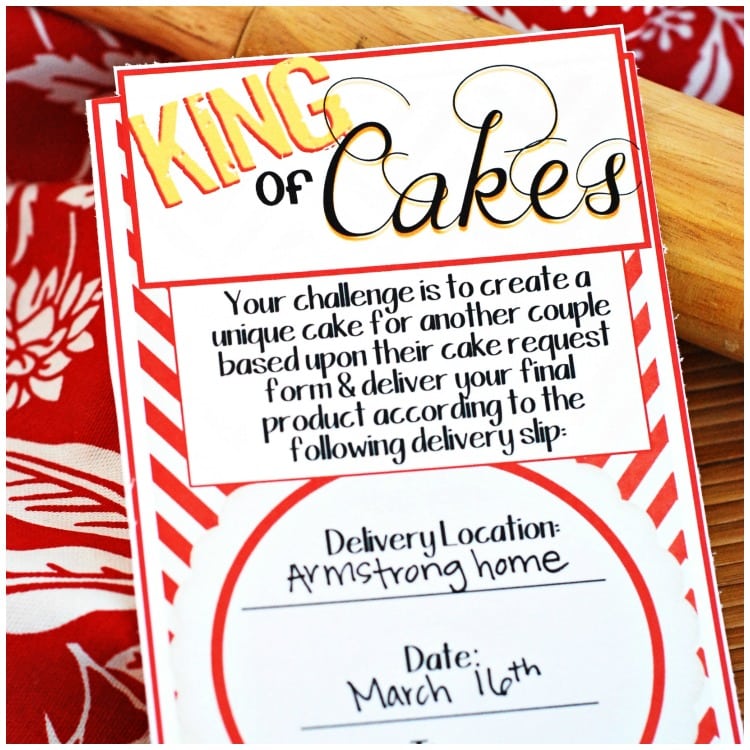 KiNG
Of Cakes
Your challenge is to create a
unique cake for another couple
based upon their cake request
form & deliver your final
product according to the
following delivery slip:
Delivery Location:
Armstrong home
Date:
March 16th